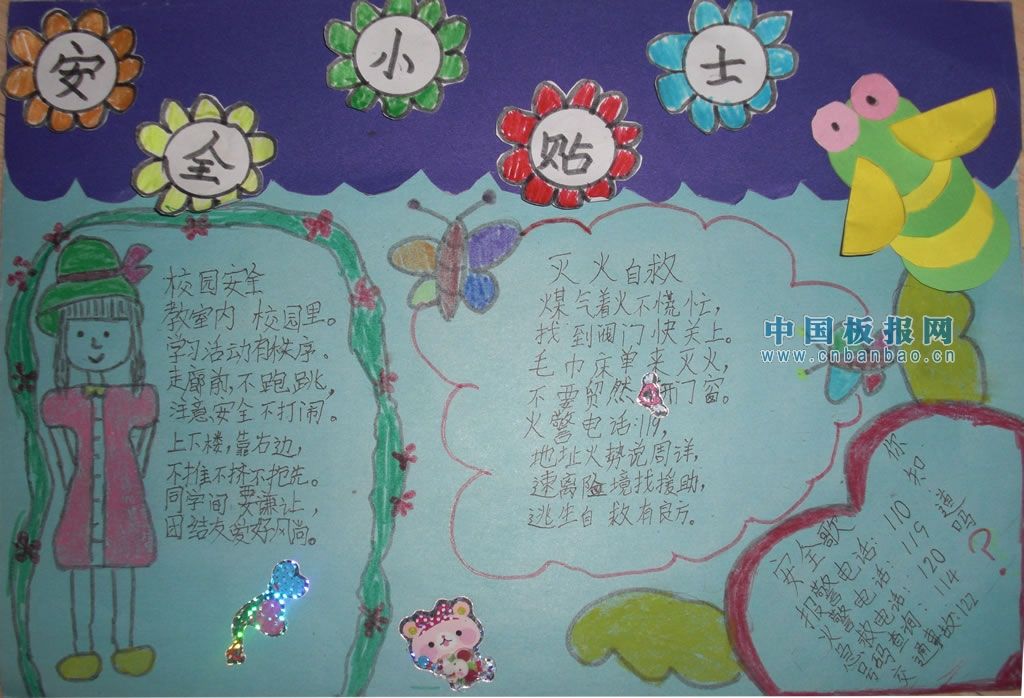 安全小贴士
校园安全
教室内 校园里。
学习活动有秩序。
走廊前,不跑跳,
注意安全不打闹。
上下楼,靠右边,
不推不挤不抢先。
同学间 要谦让,
团结友爱好风尚。
灭火自救
煤气着火不慌忙,
找到阀门快关上。
毛巾床单来灭火,
不要贸然 开门窗。
火警电话:119,
地址火势说周详,
速离险境找援助,
逃生自救有良方。
中国板报网
www.cnbanbao.cn
你知道吗?
安全歌
报警电话:110
火警电话:119
急救电话:120
号码查询:114
交通事故:122